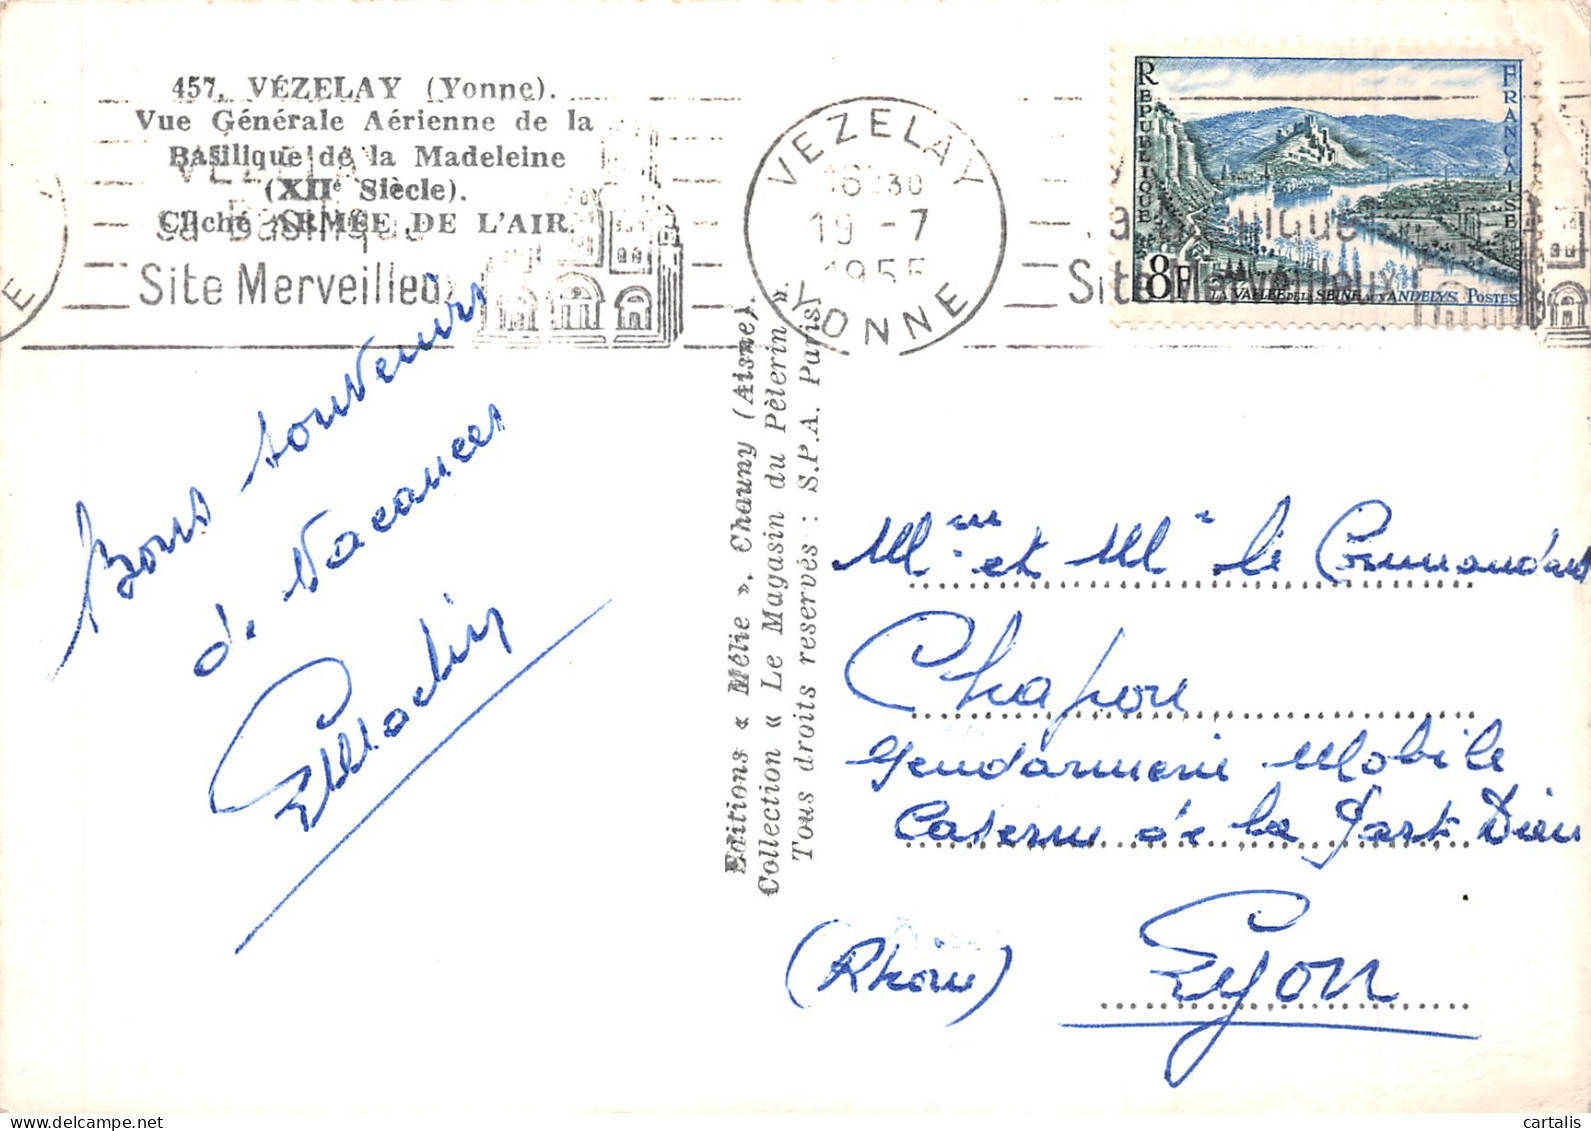 457. VÉZELAY (Yonne).
Vue Générale Aérienne de la
Basilique de la Madeleine
(XIIe Siècle).
Cliché ARMÉE DE L'AIR.
VEZELAY
sa Basilique
Site Merveilleux
VEZELAY
16 30
19 -7
1955
YONNE
RÉPUBLIQUE FRANÇAISE
8F
LA VALLÉE DE LA SEINE AUX ANDELYS POSTES
Site Merveilleux
Bons souvenirs
de Vacances
Editions « Mélie ». Chauny (Aisne).
Collection « Le Magasin du Pèlerin ».
Tous droits reservés : S.P.A. Paris
Mme et Mr le Commandant
Chapon
Gendarmerie Mobile
Caserne de la Part Dieu
Lyon
(Rhone)
cartalis